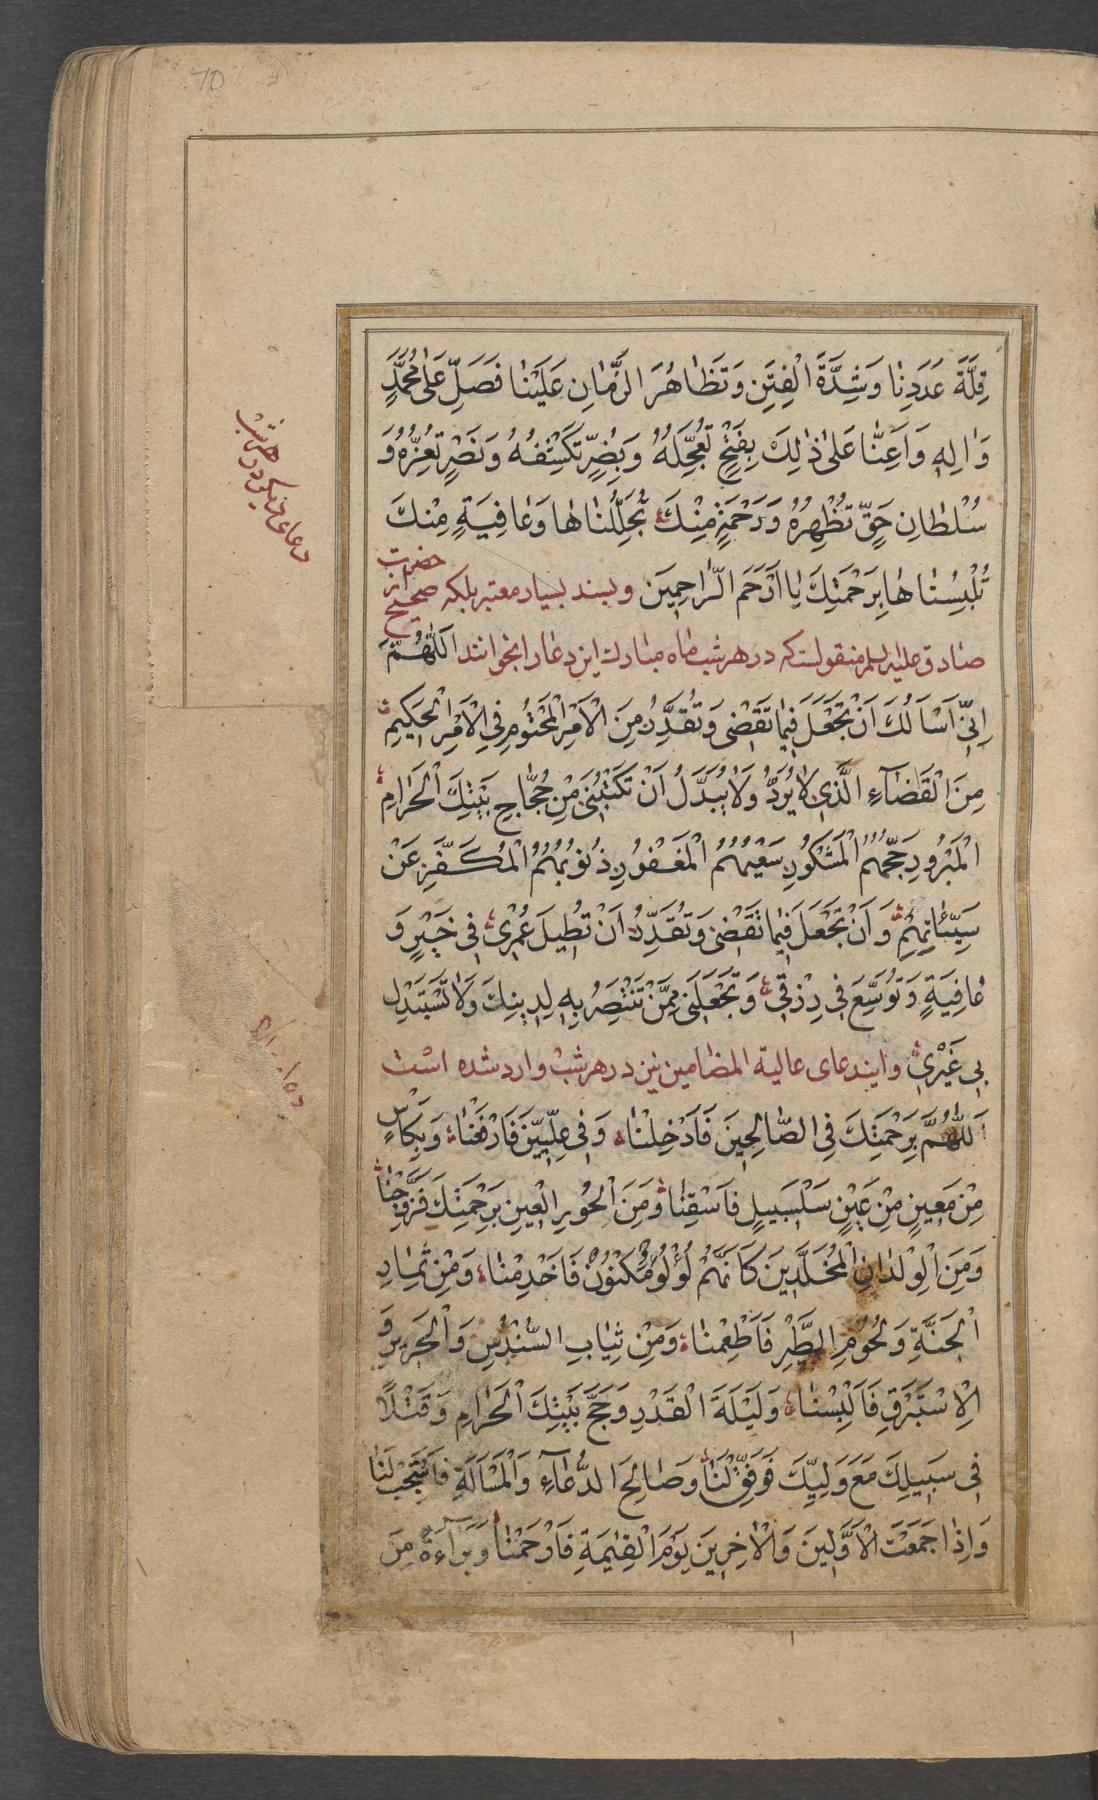 70
قِلَّةَ عَدَدِنٰا وَشِدَّةَ الْفِتَنِ وَتَظٰاهُرَ الزَّمٰانِ عَلَيْنٰا فَصَلِّ عَلىٰ مُحَمَّدٍ
وَاٰلِهِ وَاَعِنّٰا عَلىٰ ذٰلِكَ بِفَتْحٍ تُعَجِّلُهُ وَبِضُرٍّ تَكْشِفُهُ وَنَصْرٍ تُعِزُّهُ وَ
سُلْطٰانِ حَقٍّ تُظْهِرُهُ وَرَحْمَةٍ مِنْكَ تُجَلِّلُنٰاهٰا وَعٰافِيَةٍ مِنْكَ
تُلْبِسُنٰاهٰا بِرَحْمَتِكَ يٰا اَرْحَمَ الرّٰاحِمِينَ وبسند بسيار معتبر بلكه صحيح از حضرت
صادق عليه السلم منقولست كه در هر شب ماه مبارك اين دعا را بخوانند اَللّٰهُمَّ
اِنّي اَسْاَلُكَ اَنْ تَجْعَلَ فِيمٰا تَقْضي وَتُقَدِّرُ مِنَ الْاَمْرِ الْمَحْتُومِ فِي الْاَمْرِ الْحَكِيمِ
مِنَ الْقَضٰآءِ الَّذي لٰا يُرَدُّ وَلٰا يُبَدَّلُ اَنْ تَكْتُبَني مِنْ حُجّٰاجِ بَيْتِكَ الْحَرٰامِ
الْمَبْرُورِ حَجُّهُمُ الْمَشْكُورِ سَعْيُهُمُ الْمَغْفُورِ ذُنُوبُهُمُ الْمُكَفَّرِ عَنْ
سَيِّئٰاتِهِمْ وَاَنْ تَجْعَلَ فِيمٰا تَقْضي وَتُقَدِّرُ اَنْ تُطِيلَ عُمْري في خَيْرٍ وَ
عٰافِيَةٍ وَتُوَسِّعَ في رِزْقي وَتَجْعَلَني مِمَّنْ تَنْتَصِرُ بِهِ لِدِينِكَ وَلٰا تَسْتَبْدِل
بي غَيْري واين دعاى عالية المضامين نيز در هر شب وارد شده است
اَللّٰهُمَّ بِرَحْمَتِكَ فِي الصّٰالِحِينَ فَاَدْخِلْنٰا وَفي عِلِّيِّينَ فَارْفَعْنٰا وَبِكَاْسٍ
مِنْ مَعِينٍ مِنْ عَيْنٍ سَلْسَبِيلٍ فَاسْقِنٰا وَمِنَ الْحُورِ الْعِينِ بِرَحْمَتِكَ فَزَوِّجْنٰا
وَمِنَ الْوِلْدٰانِ الْمُخَلَّدِينَ كَاَنَّهُمْ لُؤْلُؤٌ مَكْنُونٌ فَاَخْدِمْنٰا وَمِنْ ثِمٰارِ
الْجَنَّةِ وَلُحُومِ الطَّيْرِ فَاَطْعِمْنٰا وَمِنْ ثِيٰابِ السُّنْدُسِ وَالْحَرِيرِ وَ
الْاِسْتَبْرَقِ فَاَلْبِسْنٰا وَلَيْلَةَ الْقَدْرِ وَحَجَّ بَيْتِكَ الْحَرٰامِ وَقَتْلًا
في سَبِيلِكَ مَعَ وَلِيِّكَ فَوَفِّقْ لَنٰا وَصٰالِحَ الدُّعٰآءِ وَالْمَسْاَلَةِ فَاسْتَجِبْ لَنٰا
وَاِذٰا جَمَعْتَ الْاَوَّلِينَ وَالْاٰخِرِينَ يَوْمَ الْقِيٰمَةِ فَارْحَمْنٰا وَبَرٰآءَةً مِنَ
دعاى ديگر در هر شب